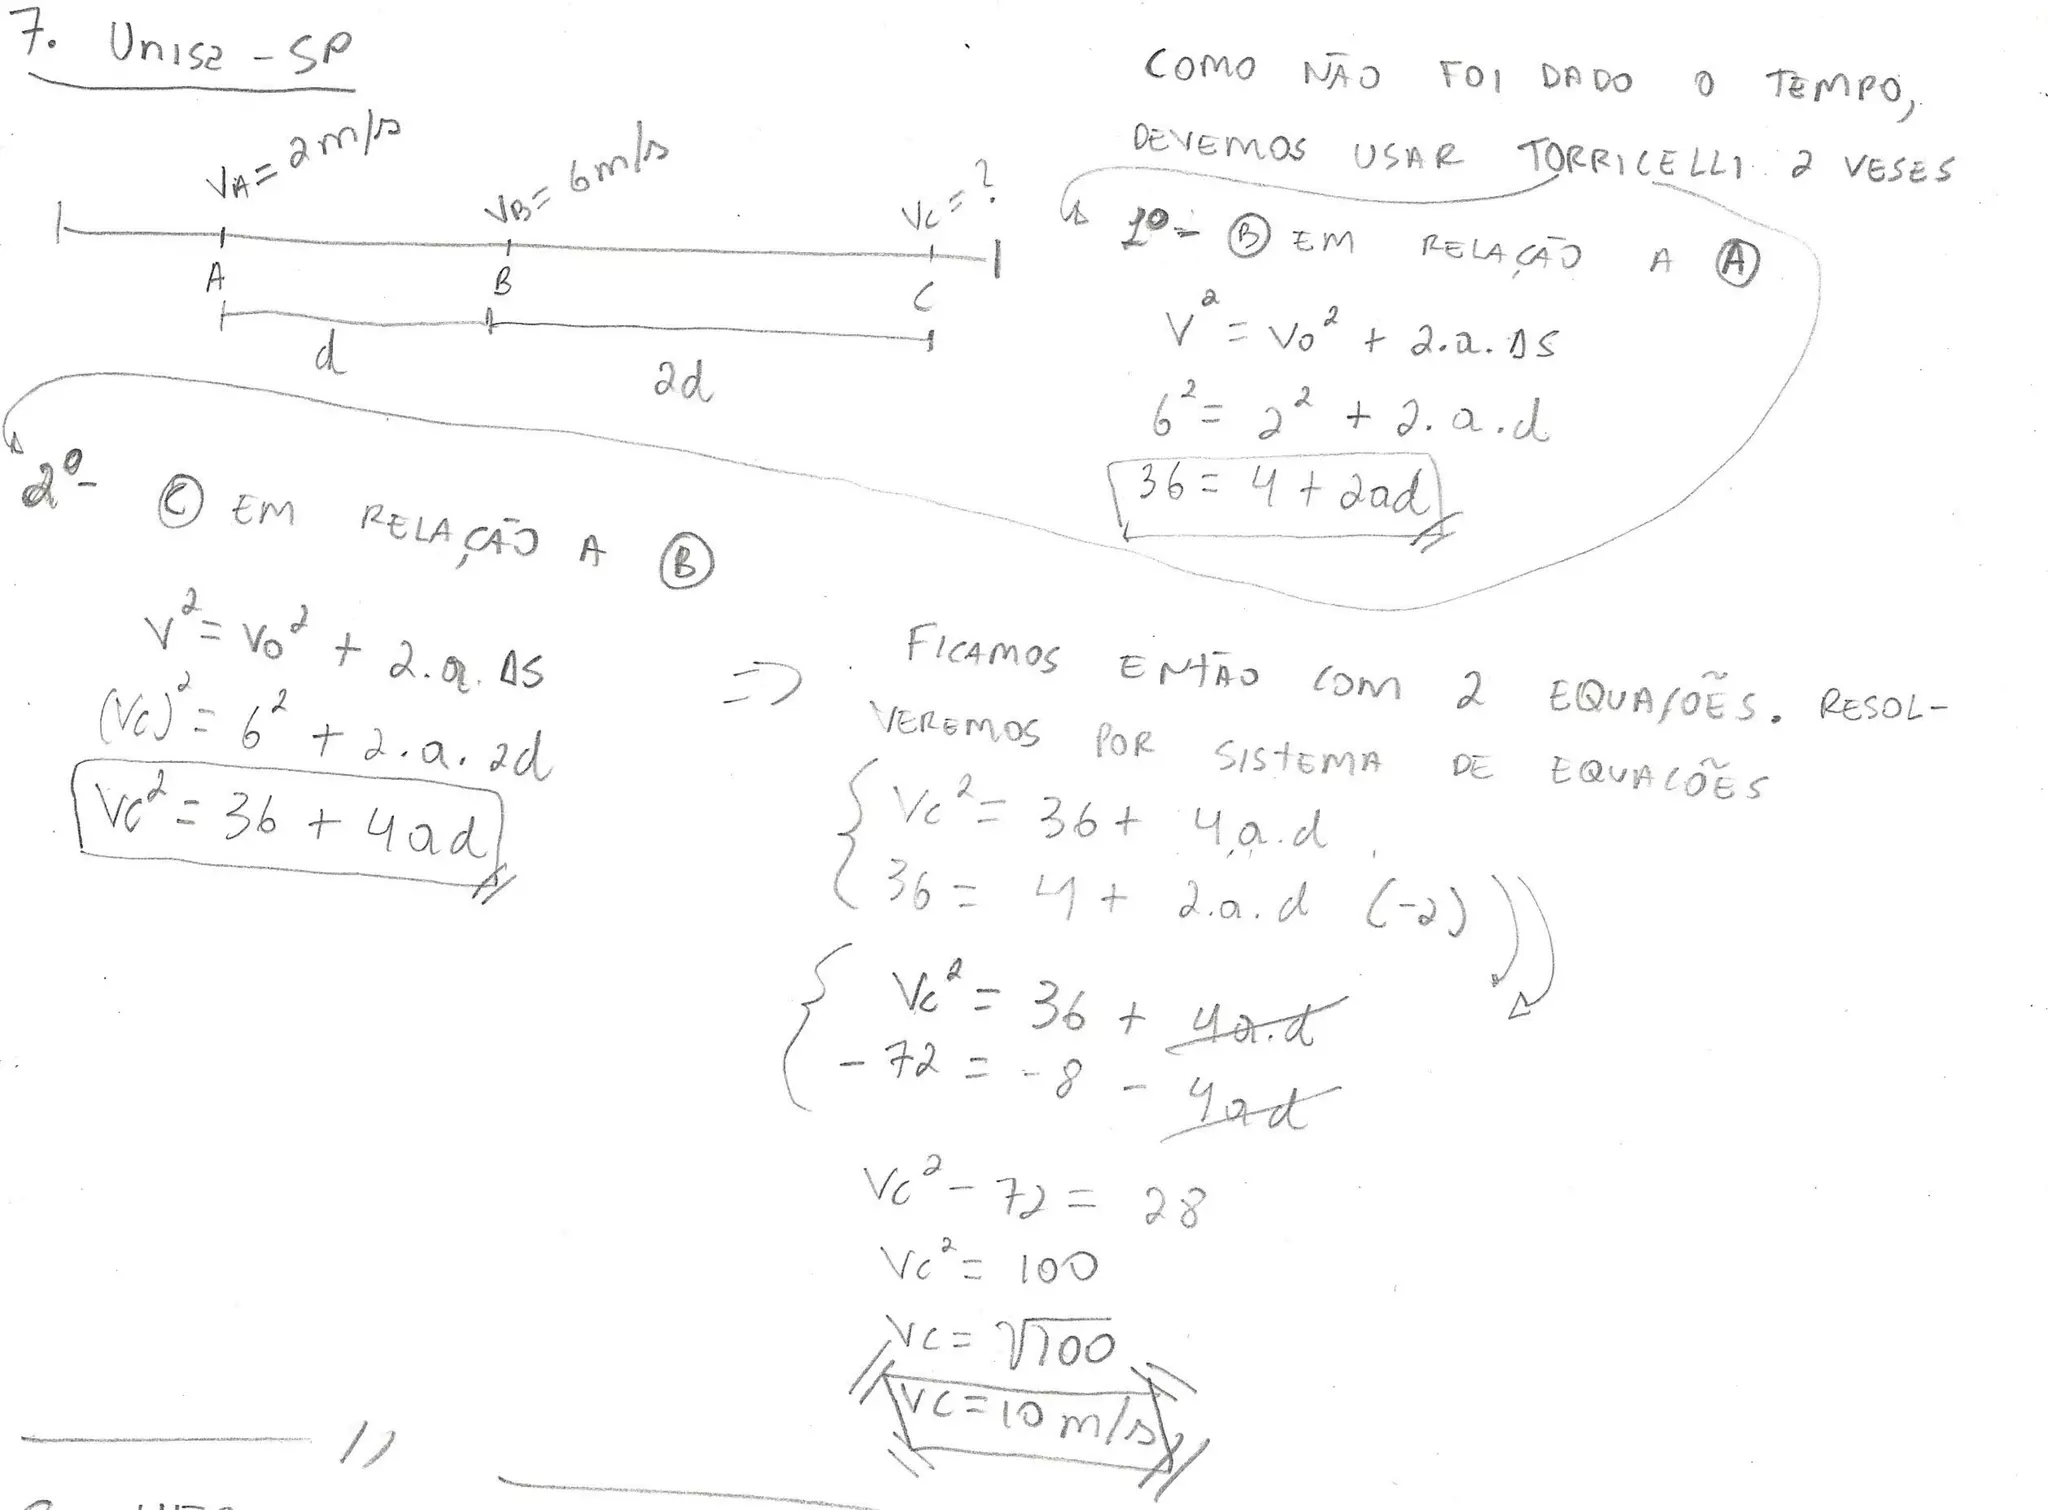 7. Unisa - SP
VA = 2 m/s
VB = 6 m/s
VC = ?
A
B
C
d
2d
COMO NÃO FOI DADO O TEMPO,
DEVEMOS USAR TORRICELLI 2 VESES
1º - B EM RELAÇÃO A A
V² = V0² + 2.a.ΔS
6² = 2² + 2.a.d
36 = 4 + 2ad
2º - C EM RELAÇÃO A B
V² = V0² + 2.a.ΔS
(Vc)² = 6² + 2.a.2d
Vc² = 36 + 4ad
=> FICAMOS ENTÃO COM 2 EQUAÇÕES. RESOL-
VEREMOS POR SISTEMA DE EQUACÕES
Vc² = 36 + 4.a.d
36 = 4 + 2.a.d (-2)
Vc² = 36 + 4a.d
-72 = -8 - 4ad
Vc² - 72 = 28
Vc² = 100
VC = √100
VC = 10 m/s